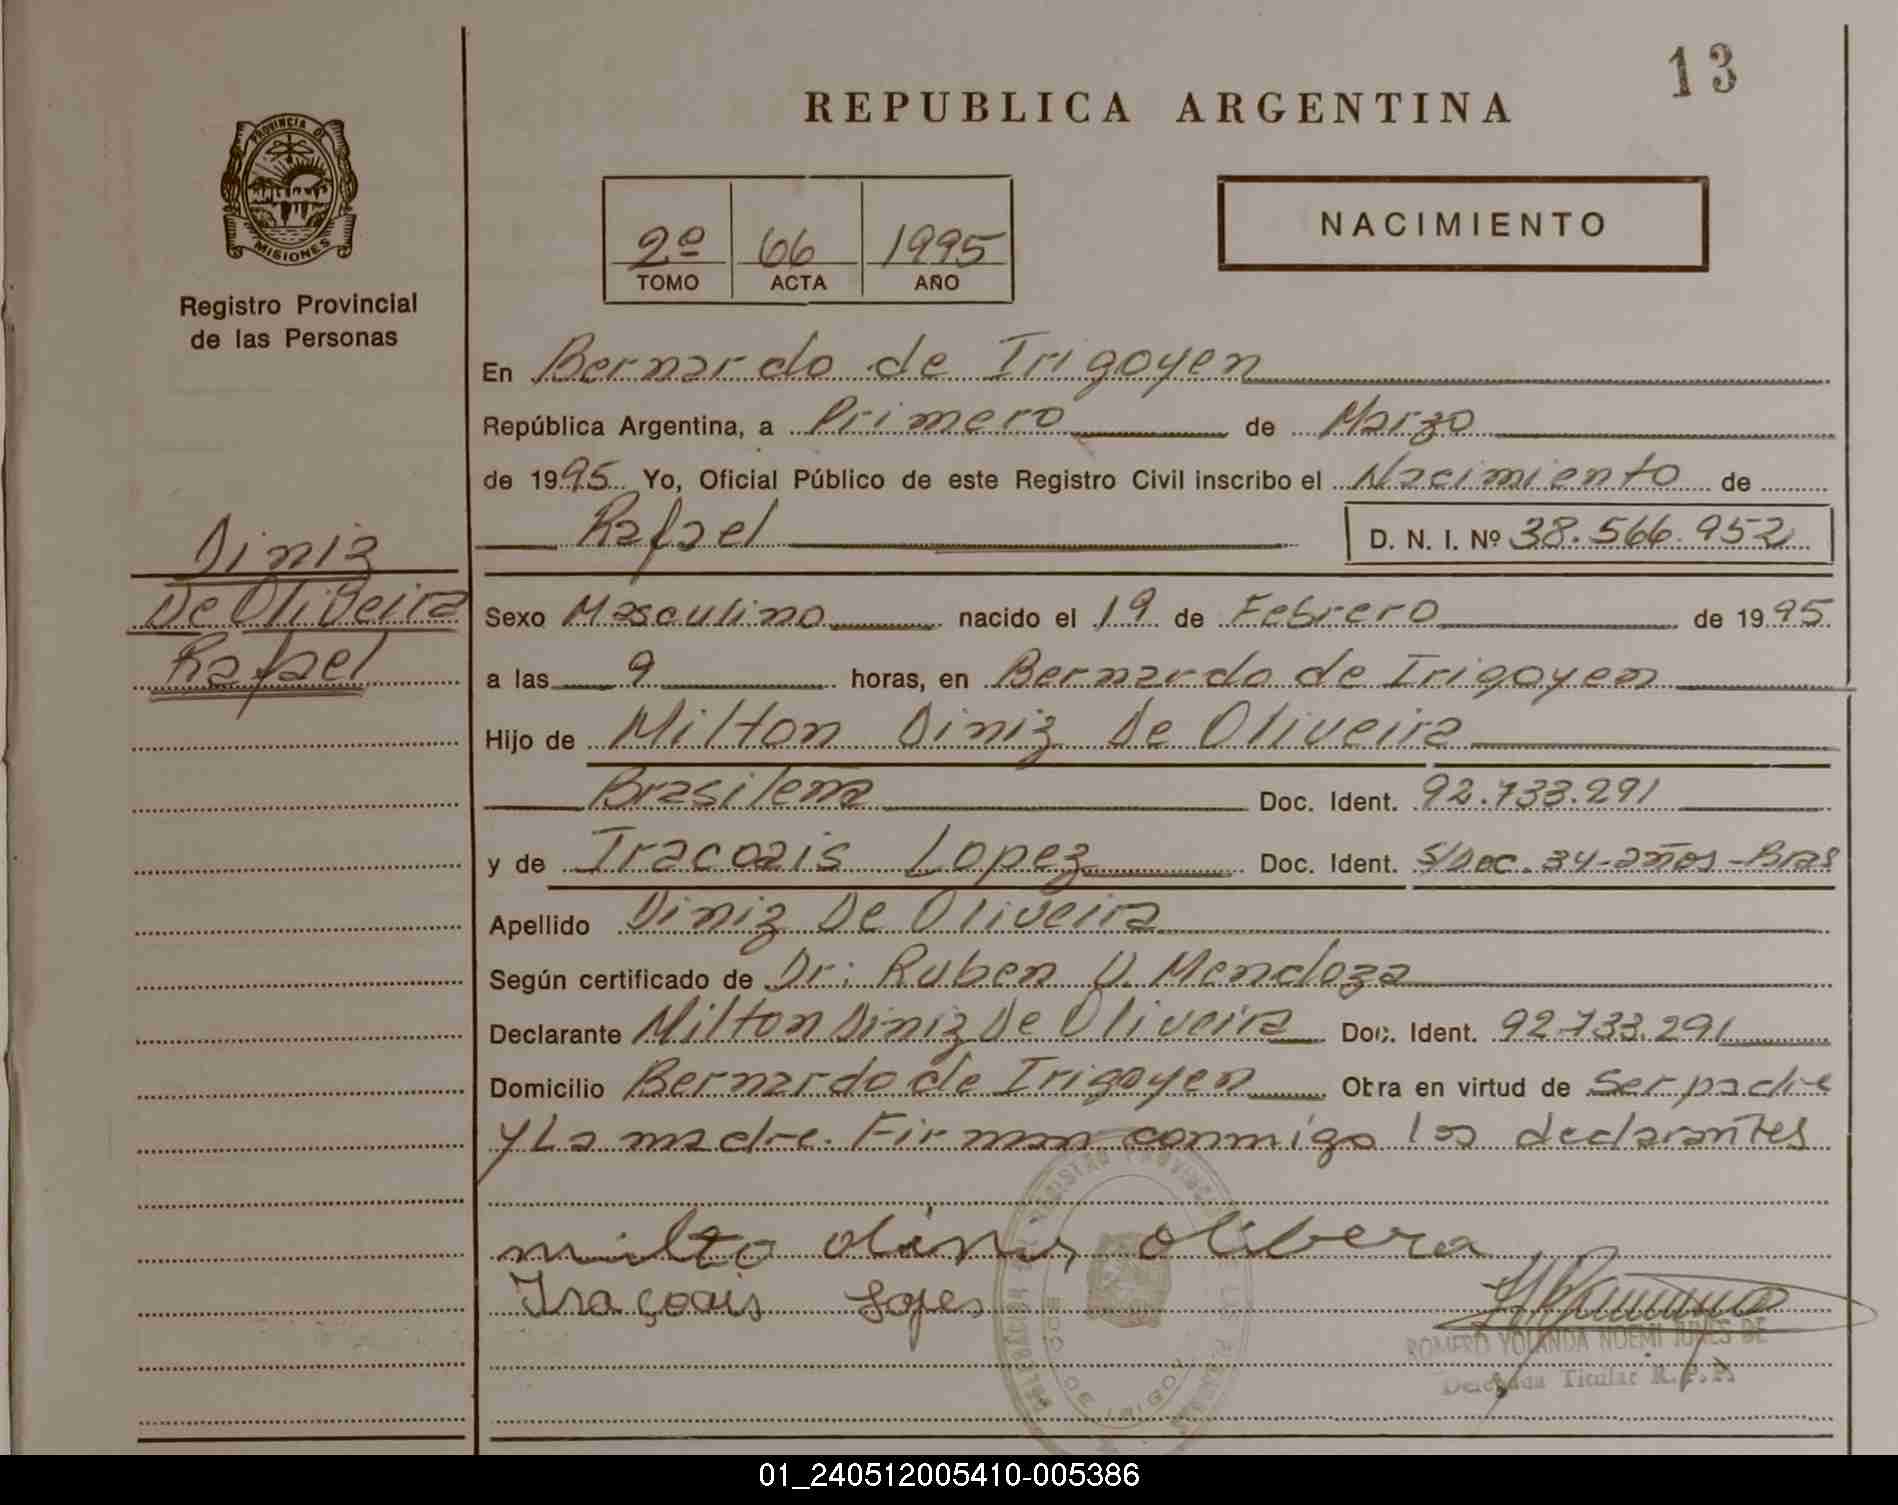 13
REPUBLICA ARGENTINA
PROVINCIA DE
MISIONES
Registro Provincial
de las Personas
2º 66 1995
TOMO ACTA AÑO
NACIMIENTO
En Bernardo de Irigoyen
República Argentina, a Primero de Marzo
de 1995 Yo, Oficial Público de este Registro Civil inscribo el Nacimiento de
Rafael D. N. I. Nº 38.566.952
Diniz
De Oliveira
Rafael
Sexo Masculino nacido el 19 de Febrero de 1995
a las 9 horas, en Bernardo de Irigoyen
Hijo de Milton Diniz De Oliveira
Brasileña Doc. Ident. 92.733.291
y de Iracoais Lopez Doc. Ident. S/Doc. 34-años-Bras
Apellido Diniz De Oliveira
Según certificado de Dr: Ruben D. Mendoza
Declarante Milton Diniz De Oliveira Doc. Ident. 92.733.291
Domicilio Bernardo de Irigoyen Obra en virtud de Ser padre
y La madre. Firman conmigo los declarantes
milto dinis olibera
Iraçoais Lopes
ROMERO YOLANDA NOEMI JUNES DE
Delegada Titular R.P.P.
01_240512005410-005386